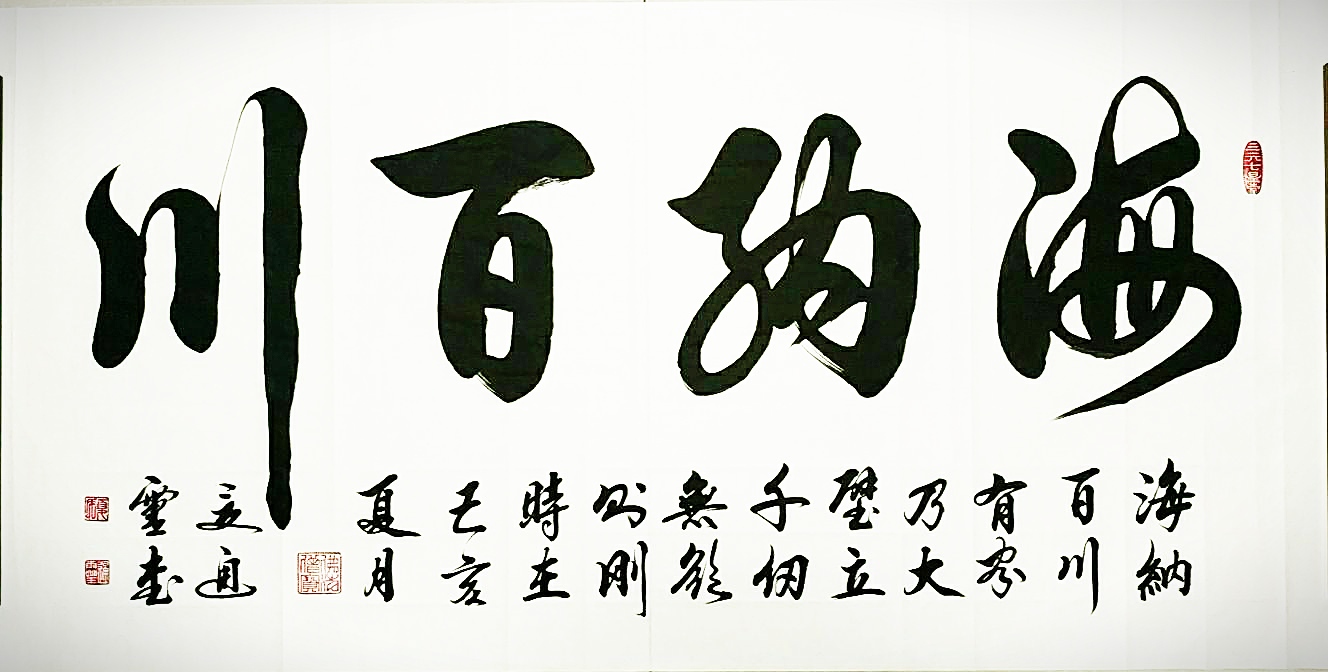 海納百川
海納
百川
有容
乃大
壁立
千仞
無欲
則剛
時在
己亥
夏月
佛法僧寶